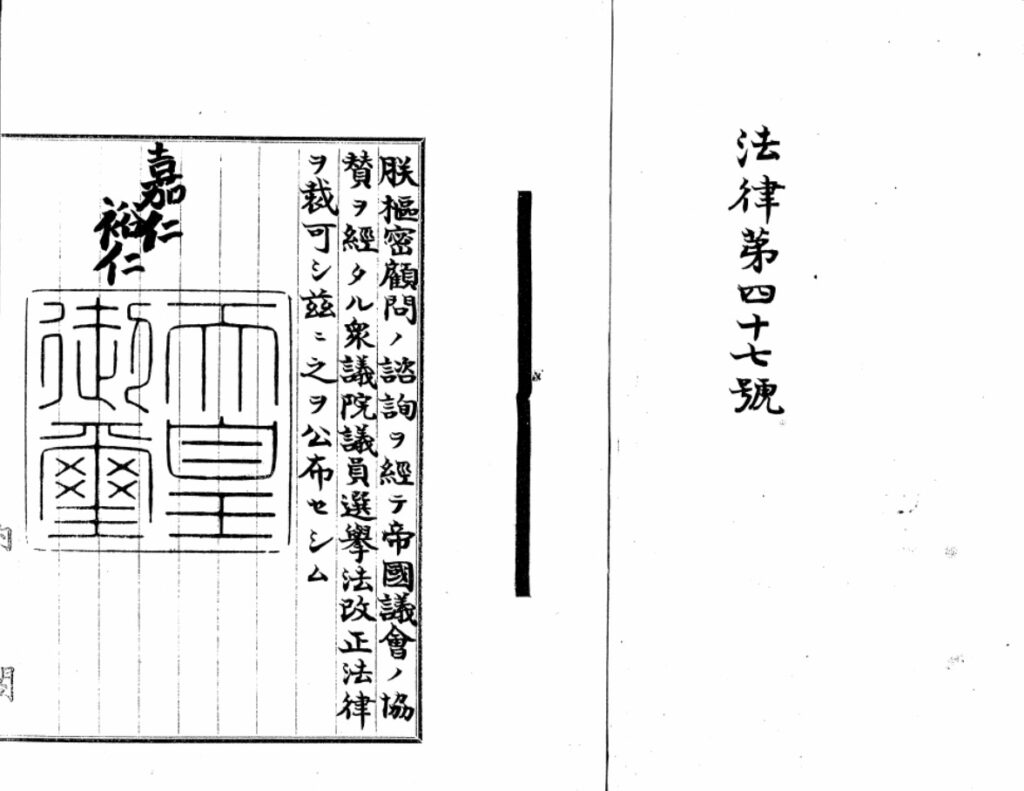 法律第四十七號
朕樞密顧問ノ諮詢ヲ經テ帝國議會ノ協
賛ヲ經タル衆議院議員選擧法改正法律
ヲ裁可シ茲ニ之ヲ公布セシム
嘉仁
裕仁
天皇
御璽
内
閣